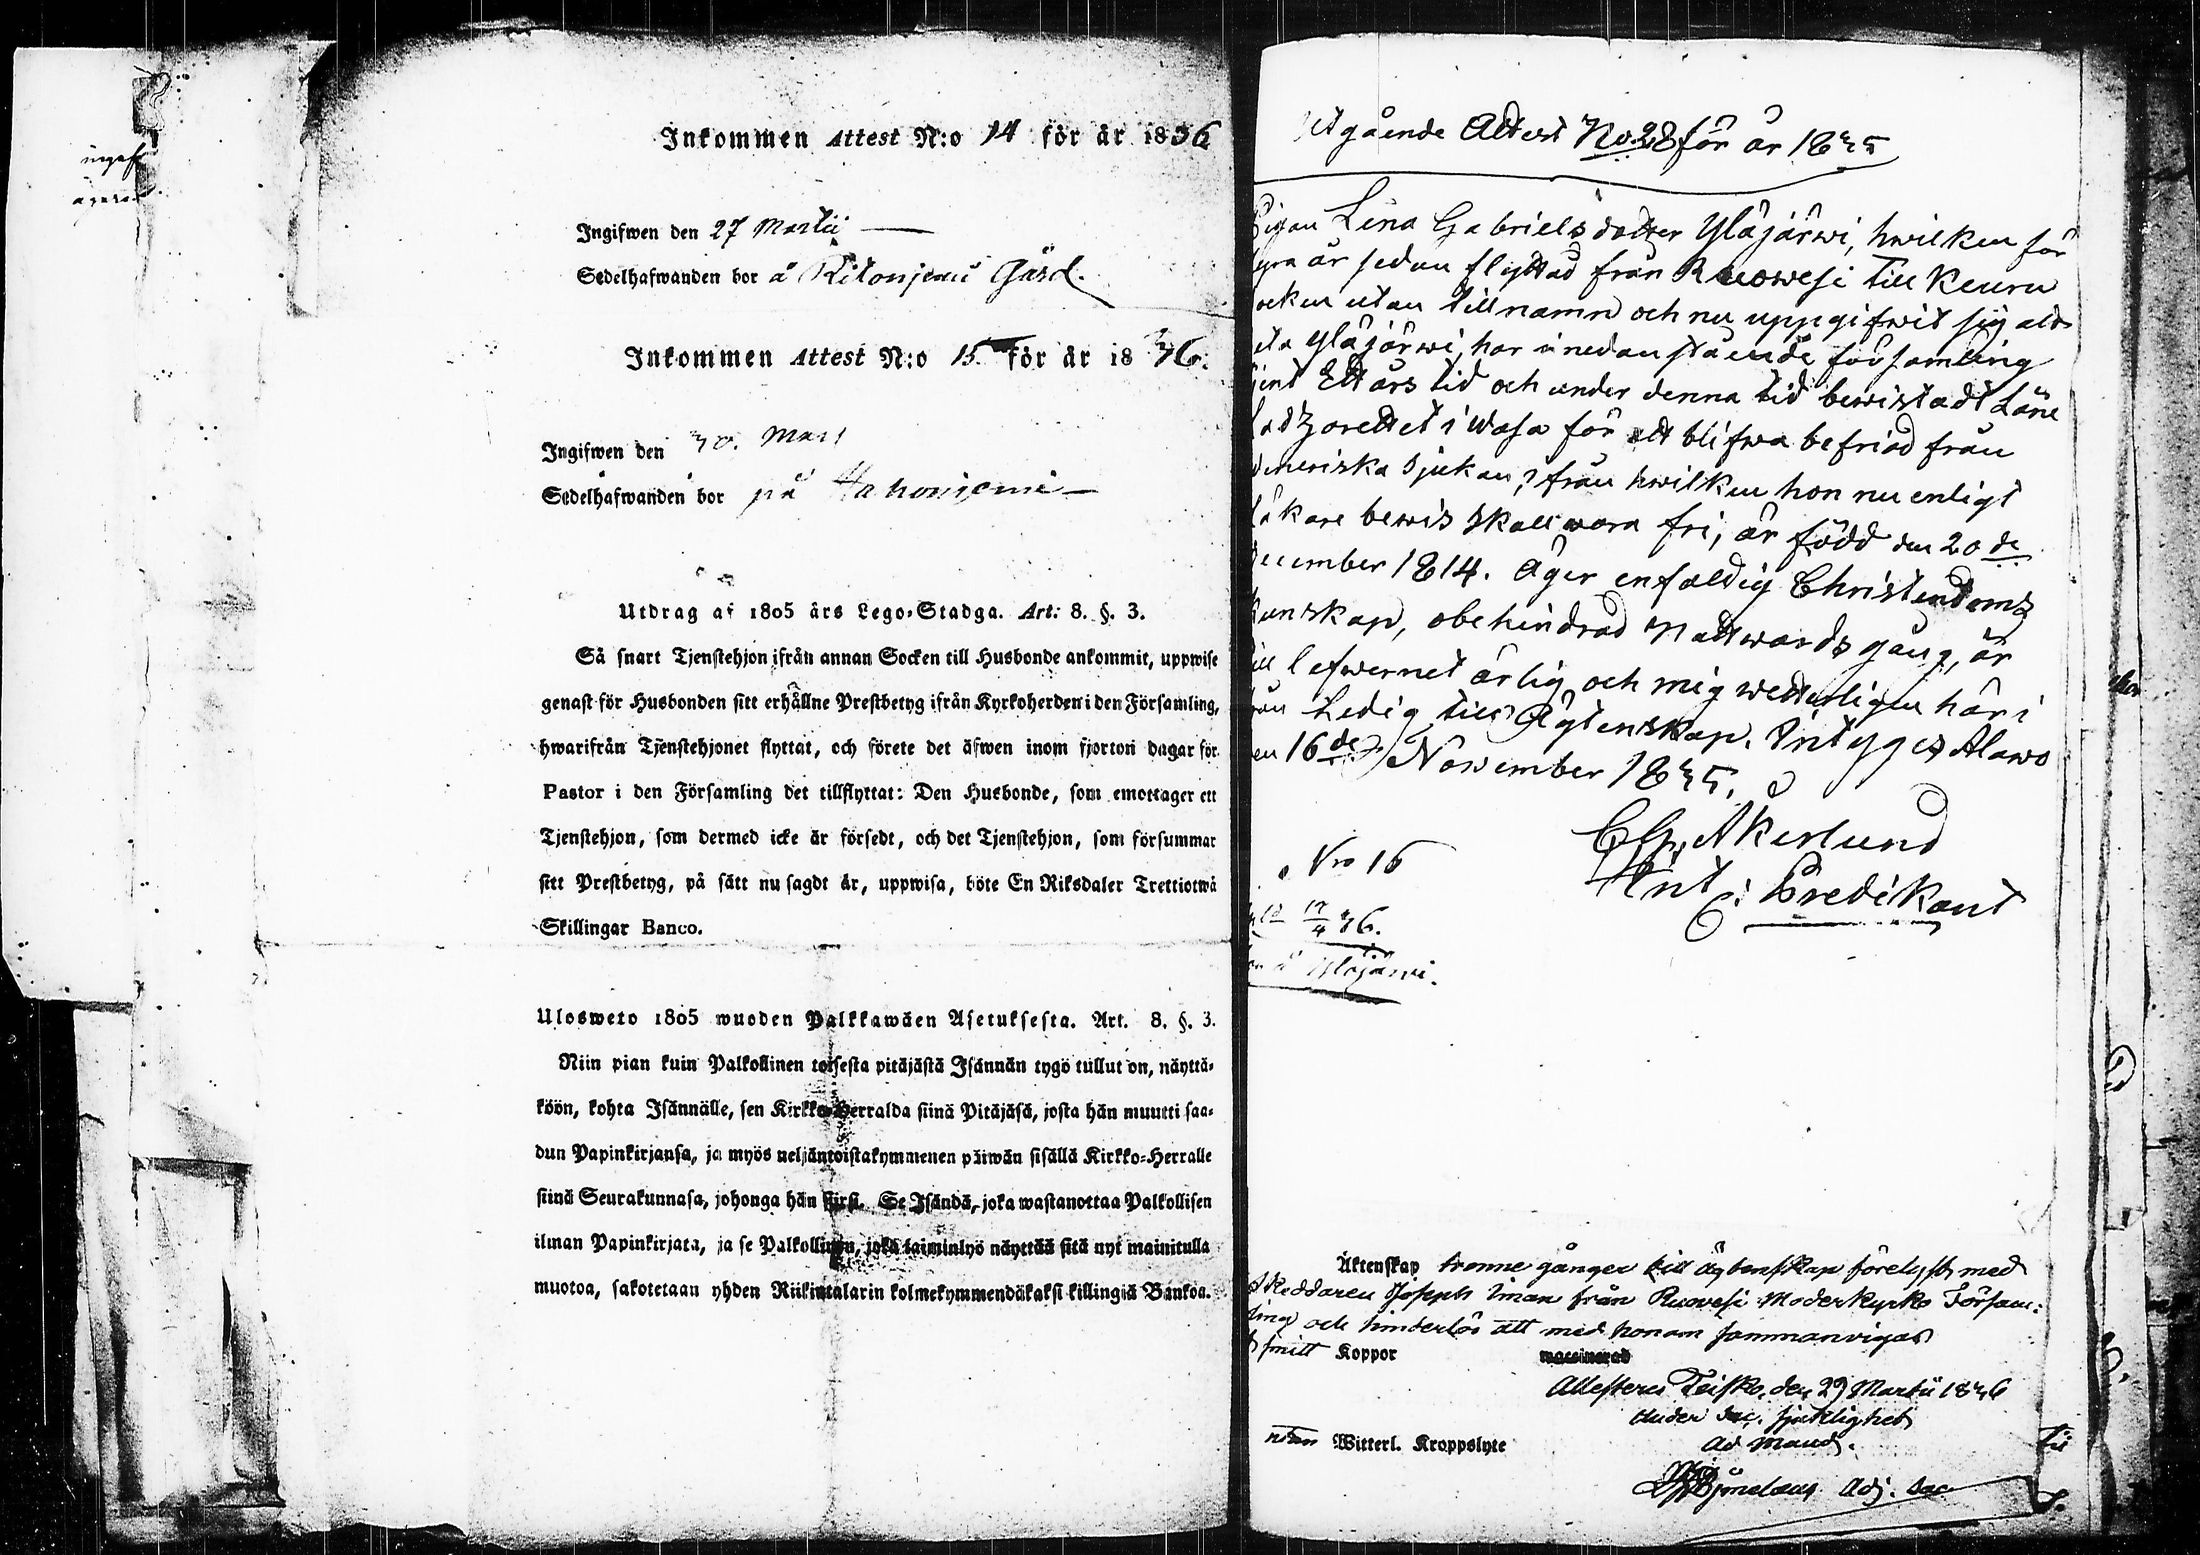 Inkommen Attest N:o 14 för år 1836
Ingifwen den 27 Martii
Sedelhafwanden bor å Ritoniemi Gård.
Inkommen Attest N:o 15 för år 1836.
Ingifwen den 30. Mars
Sedelhafwanden bor på
Utdrag af 1805 års Lego-Stadga. Art: 8. §. 3.
Så snart Tjenstehjon ifrån annan Socken till Husbonde ankommit, uppwise
genast för Husbonden sitt erhållne Prestbetyg ifrån Kyrkoherden i den Församling,
hwarifrån Tjenstehjonet flyttat, och förete det äfwen inom fjorton dagar för
Pastor i den Församling det tillflyttat: Den Husbonde, som emottager ett
Tjenstehjon, som dermed icke är försedt, och det Tjenstehjon, som försummar
sitt Prestbetyg, på sätt nu sagdt är, uppwisa, böte En Riksdaler Trettiotwå
Skillingar Banco.
Ulosweto 1805 wuoden Palkkawäen Asetuksesta. Art. 8. §. 3.
Niin pian kuin Palkollinen toisesta pitäjästä Isännän tygö tullut on, näyttä-
köön, kohta Isännälle, sen Kirkko-Herralda siinä Pitäjäsä, josta hän muutti saa-
dun Papinkirjansa, ja myös neljäntoistakymmenen päiwän sisällä Kirkko-Herralle
siinä Seurakunnasa, johonga hän siirsi. Se Isändä, joka wastanottaa Palkollisen
ilman Papinkirjata, ja se Palkollinen, joka laiminlyö näyttää sitä nyt mainitulla
muotoa, sakotetaan yhden Riikintalarin kolmekymmendäkaksi killingiä Bankoa.
Utgående Attest No. 28 för år 1835
Pigan Lena Gabrielsdotter Yläjärwi, hwilken för
fyra år sedan flyttad från Ruowesi till Keuru
socken utan tillnamn och nu uppgifwit sig
heta Yläjärwi, har i nedanstående församling
tjent Ett års tid och under denna tid bewistadt Läne
Ladzarettet i Wasa för att blifwa befriad från
Veneriska Sjukan, från hwilken hon nu enligt
Läkare bewis skall wara fri, är född den 20de
December 1814. Äger enfaldig Christendoms
kunskap, obehindrad Nattwards gång, är
till lefwernet ärlig och mig wetterligen här i
från Ledig till Ägtenskap. Intygas Alawo
den 16de November 1835.
C. G. Åkerlund
Predikant
Nro 16
17/4 36.
å Yläjärwi.
Äktenskap trenne gånger till ägtenskap förelyst med
Skräddaren Joseph Iman från Ruovesi Moderkyrko Försam:
ling och hinderlös att med honom sammanvigas
Koppor vaccinerad
Attesteras Teisko, den 29 Martii 1836
Under Sac. sjuklighet
Ad Mand.
Witterl. Kroppslyte
Adj. Sac.